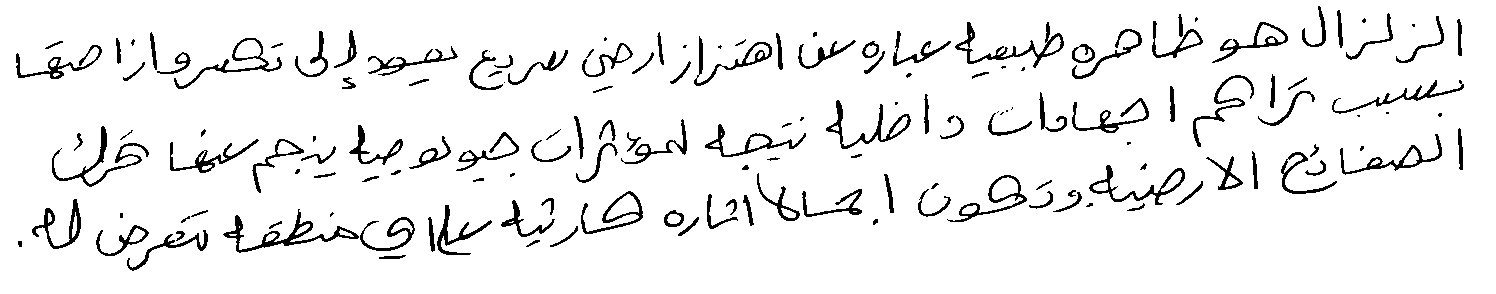 الزلزال هو ظاهره طبيعيه عباره عن اهتزاز ارضي سريع يعود إلى تكسر وازاحتها
بسبب تراكم اجهادات داخليه نتيجه لمؤثرات جيولوجيه ينجم عنها تحرك
الصفائح الارضيه وتكون اجمالا اثاره كارثيه على اي منطقه تتعرض له.